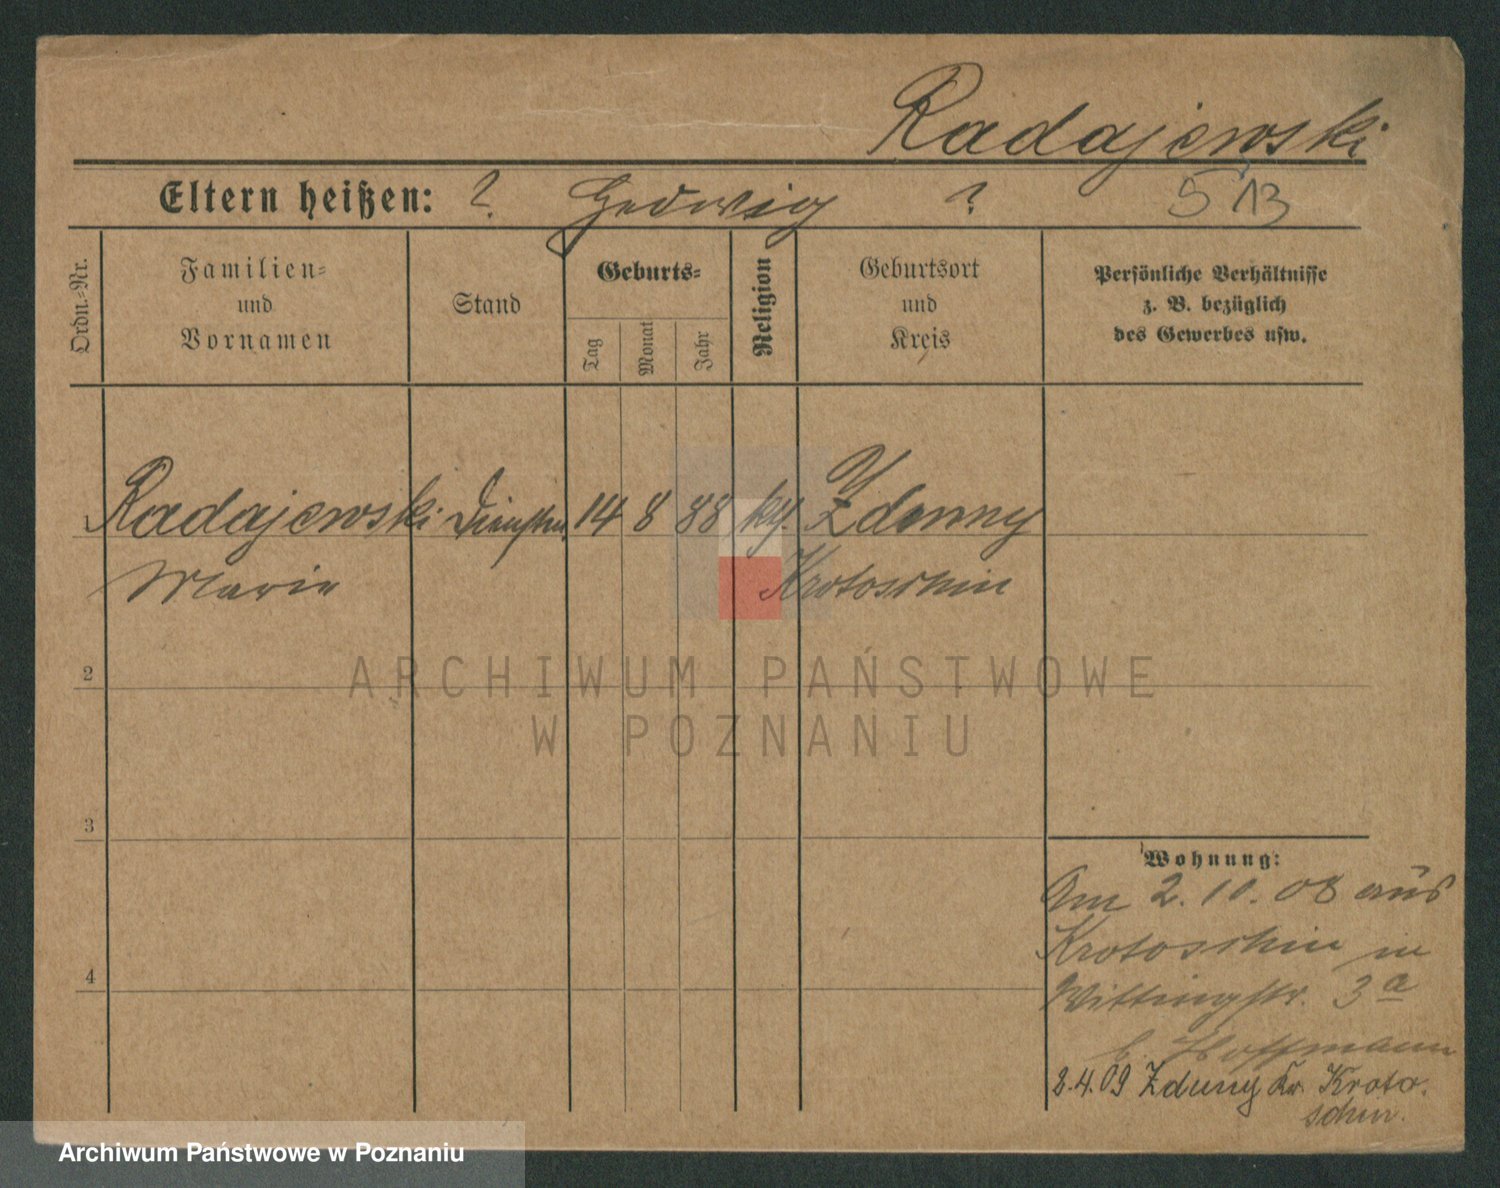 Radajewski
Eltern heißen: ? Hedwig ? 513
Ordn.=Nr.
Familien=
und
Vornamen
Stand
Geburts=
Tag
Monat
Jahr
Religion
Geburtsort
und
Kreis
Persönliche Verhältnisse
z. B. bezüglich
des Gewerbes usw.
1 Radajewski 14 8 88 Zdunny
Marie Krotoschin
2
3
4
ARCHIWUM PAŃSTWOWE
W POZNANIU
Wohnung:
Am 2. 10. 08 aus
Krotoschin in
Wittingstr. 3a
b. Hoffmann
2.4.09 Zduny Kr. Kroto
schin.
Archiwum Państwowe w Poznaniu